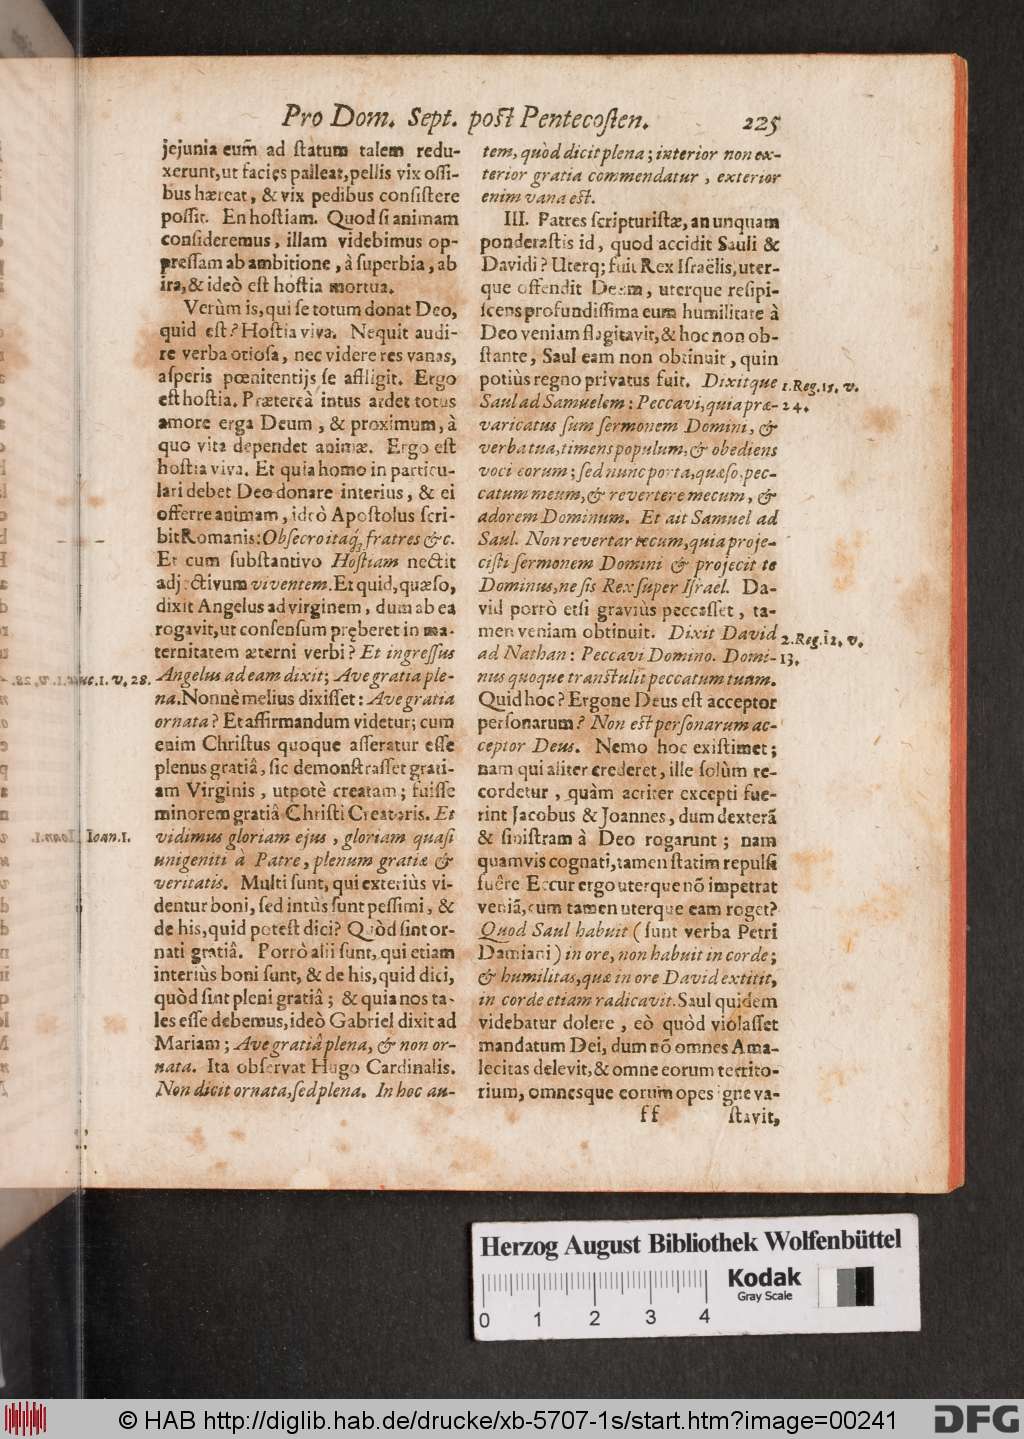 Pro Dom. Sept. post Pentecosten. 225
jejunia eum̃ ad statum talem redu-
xerunt, ut facies palleat, pellis vix ossi-
bus hæreat, & vix pedibus consistere
possit. En hostiam. Quod si animam
consideremus, illam videbimus op-
pressam ab ambitione, à superbia, ab
ira, & ideò est hostia mortua.
Verùm is, qui se totum donat Deo,
quid est? Hostia viva. Nequit audi-
re verba otiosa, nec videre res vanas,
asperis pœnitentijs se affligit. Ergo
est hostia. Prætereà intus ardet totus
amore erga Deum, & proximum, à
quo vita dependet animæ. Ergo est
hostia viva. Et quia homo in particu-
lari debet Deo donare interius, & ei
offerre animam, ideò Apostolus scri-
bit Romanis: Obsecro itaq́; fratres &c.
Et cum substantivo Hostiam nectit
adjectivum viventem. Et quid, quæso,
dixit Angelus ad virginem, dum ab ea
rogavit, ut consensum pręberet in ma-
ternitatem æterni verbi? Et ingressus
Luc. 1. v. 28. Angelus ad eam dixit; Ave gratia ple-
na. Nonnè melius dixisset: Ave gratia
ornata? Et affirmandum videtur; cum
enim Christus quoque asseratur esse
plenus gratiâ, sic demonstrasset grati-
am Virginis, utpotè creatam; fuisse
minorem gratiâ Christi Creatoris. Et
Ioan. 1. vidimus gloriam ejus, gloriam quasi
unigeniti à Patre, plenum gratiæ &
veritatis. Multi sunt, qui exteriùs vi-
dentur boni, sed intùs sunt pessimi, &
de his, quid potest dici? Quòd sint or-
nati gratiâ. Porrò alii sunt, qui etiam
interiùs boni sunt, & de his, quid dici,
quòd sint pleni gratiâ; & quia nos ta-
les esse debemus, ideò Gabriel dixit ad
Mariam; Ave gratiâ plena, & non or-
nata. Ita observat Hugo Cardinalis.
Non dicit ornata, sed plena. In hoc au-
tem, quòd dicit plena; interior non ex-
terior gratia commendatur, exterior
enim vana est.
III. Patres scripturistæ, an unquam
ponderastis id, quod accidit Sauli &
Davidi? Uterq; fuit Rex Israëlis, uter-
que offendit Deum, uterque resipi-
scens profundissima eum humilitate à
Deo veniam flagitavit, & hoc non ob-
stante, Saul eam non obtinuit, quin
potiùs regno privatus fuit. Dixitque 1. Reg. 15. v.
Saul ad Samuelem: Peccavi, quia præ- 24.
varicatus sum sermonem Domini, &
verba tua, timens populum, & obediens
voci eorum; sed nunc porta, quæso, pec-
catum meum, & revertere mecum, &
adorem Dominum. Et ait Samuel ad
Saul. Non revertar tecum, quia proje-
cisti sermonem Domini & projecit te
Dominus, ne sis Rex super Israël. Da-
vid porrò etsi graviùs peccasset, ta-
men veniam obtinuit. Dixit David 2. Reg. 12. v.
ad Nathan: Peccavi Domino. Domi- 13.
nus quoque transtulit peccatum tuum.
Quid hoc? Ergone Deus est acceptor
personarum? Non est personarum ac-
ceptor Deus. Nemo hoc existimet;
nam qui aliter crederet, ille solùm re-
cordetur, quàm acriter excepti fue-
rint Jacobus & Joannes, dum dexterã
& sinistram à Deo rogarunt; nam
quamvis cognati, tamen statim repulsi
fuêre Et cur ergo uterque nõ impetrat
veniã, cum tamen uterque eam roget?
Quod Saul habuit (sunt verba Petri
Damiani) in ore, non habuit in corde;
& humilitas, quæ in ore David extitit,
in corde etiam radicavit. Saul quidem
videbatur dolere, eò quòd violasset
mandatum Dei, dum nõ omnes Ama-
lecitas delevit, & omne eorum territo-
rium, omnesque eorum opes igne va-
ff stavit,
Herzog August Bibliothek Wolfenbüttel
Kodak
Gray Scale
0 1 2 3 4
© HAB http://diglib.hab.de/drucke/xb-5707-1s/start.htm?image=00241
DFG